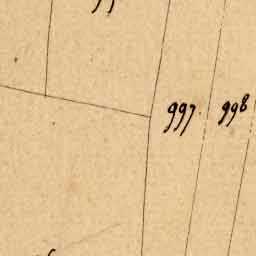 997 998